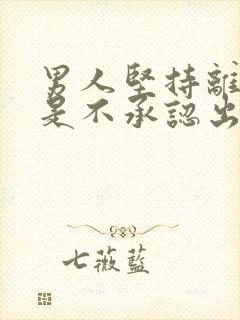 男人堅持離
是不承認出
七薇藍